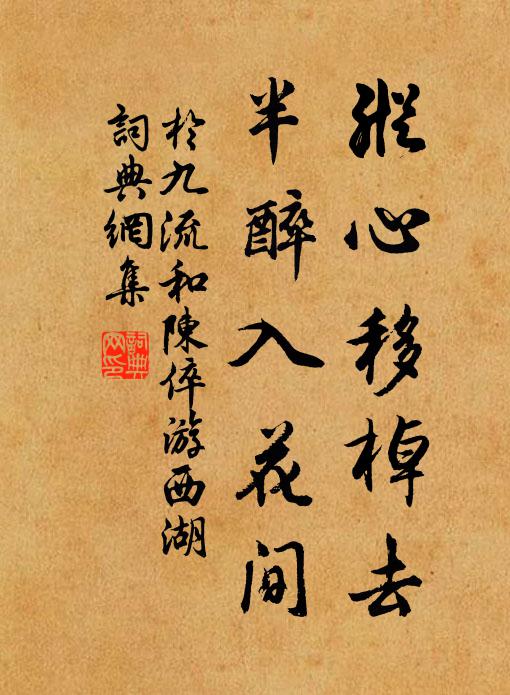 縱心移棹去
半醉入花間
於九流和陳倅游西湖
詞典網集
詞典
网印